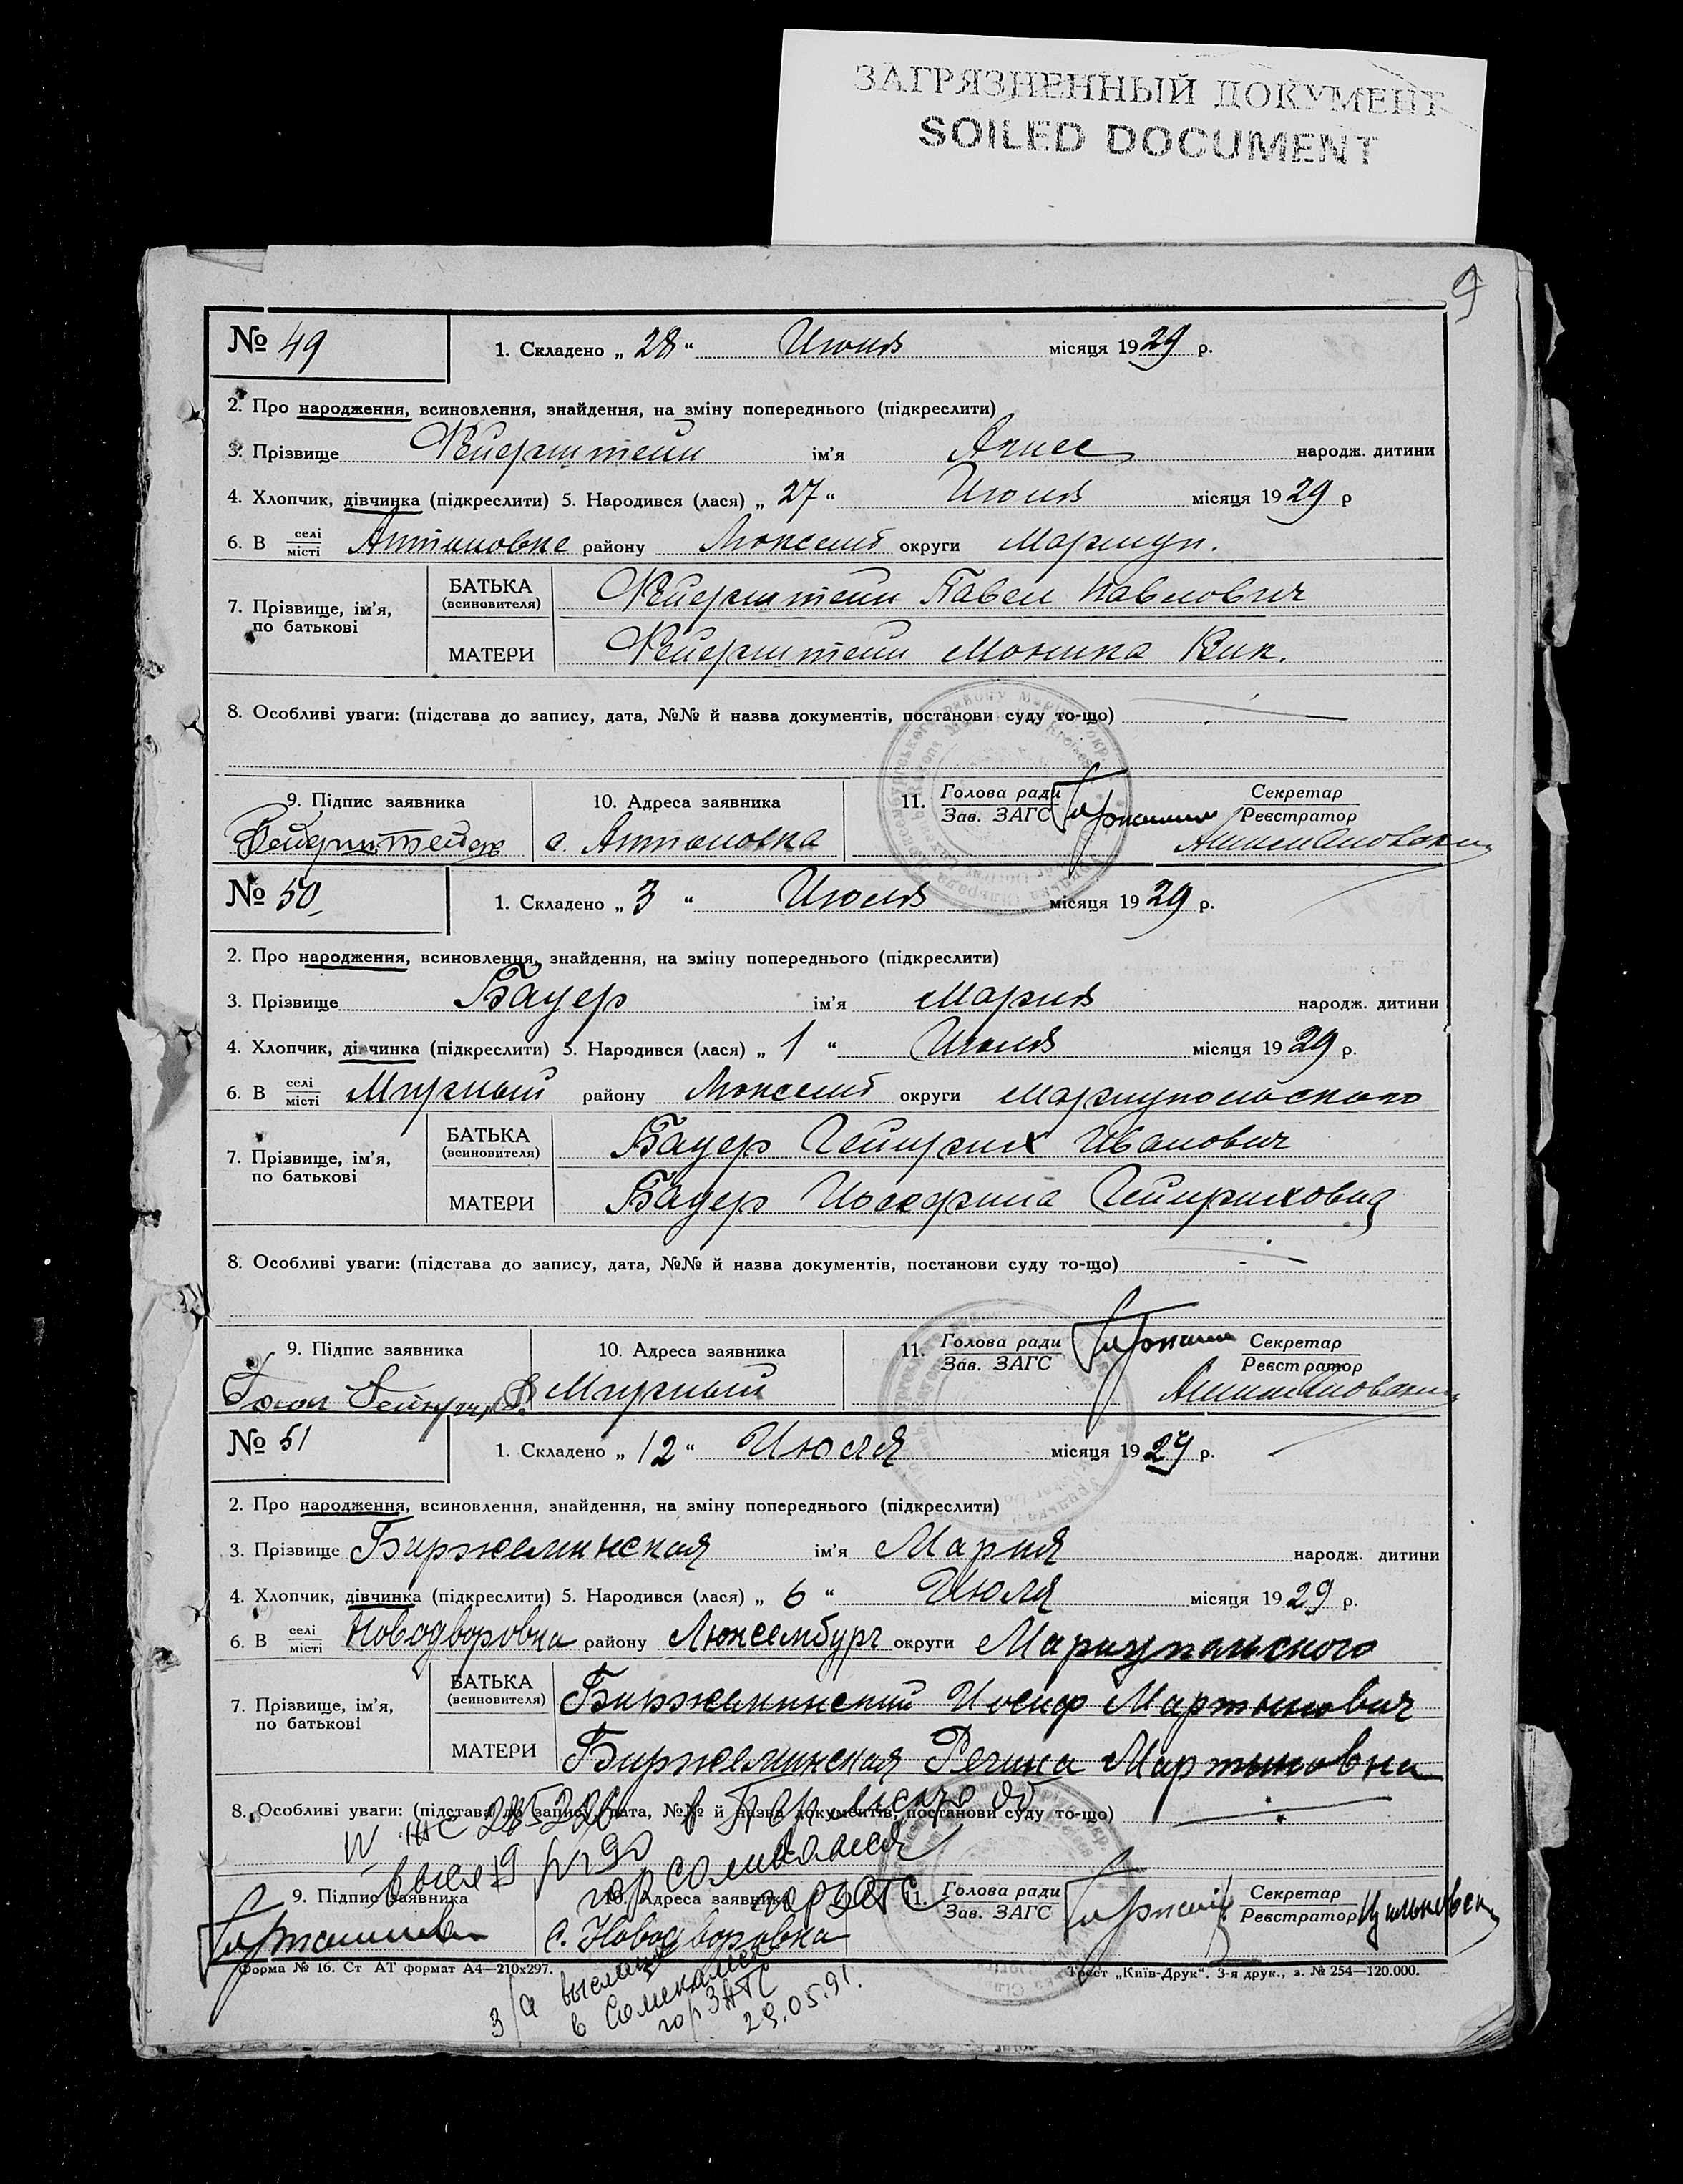 ЗАГРЯЗНЕННЫЙ ДОКУМЕНТ
SOILED DOCUMENT
9
№ 49 1. Складено „ 28 “ Июня місяця 1929 р.
2. Про народження, всиновлення, знайдення, на зміну попереднього (підкреслити)
3. Прізвище Фейерштейн ім’я Агнес народж. дитини
4. Хлопчик, дівчинка (підкреслити) 5. Народився (лася) „ 27 “ Июня місяця 1929 р
6. В селі місті Антоновке району Люксемб округи Мариуп.
7. Прізвище, ім’я, по батькові
БАТЬКА (всиновителя) Фейерштейн Павел Павлович
МАТЕРИ Фейерштейн Моника Вик.
8. Особливі уваги: (підстава до запису, дата, №№ й назва документів, постанови суду то-що)
9. Підпис заявника 10. Адреса заявника 11. Голова ради Зав. ЗАГС Секретар Реєстратор
с. Антоновка
№ 50 1. Складено „ 3 “ Июля місяця 1929 р.
2. Про народження, всиновлення, знайдення, на зміну попереднього (підкреслити)
3. Прізвище Бауер ім’я Мария народж. дитини
4. Хлопчик, дівчинка (підкреслити) 5. Народився (лася) „ 1 “ Июля місяця 1929 р.
6. В селі місті Мирный району Люксемб округи Мариупольского
7. Прізвище, ім’я, по батькові
БАТЬКА (всиновителя) Бауер Гейнрих Иванович
МАТЕРИ Бауер Иосефина Гейнриховна
8. Особливі уваги: (підстава до запису, дата, №№ й назва документів, постанови суду то-що)
9. Підпис заявника 10. Адреса заявника 11. Голова ради Зав. ЗАГС Секретар Реєстратор
Мирный
№ 51 1. Складено „ 12 “ Июля місяця 1929 р.
2. Про народження, всиновлення, знайдення, на зміну попереднього (підкреслити)
3. Прізвище Биржеминская ім’я Мария народж. дитини
4. Хлопчик, дівчинка (підкреслити) 5. Народився (лася) „ 6 “ Июля місяця 1929 р.
6. В селі місті Новодворовка району Люксембург округи Мариупольского
7. Прізвище, ім’я, по батькові
БАТЬКА (всиновителя) Биржеминский Иосиф Мартынович
МАТЕРИ Биржеминская Регина Мартыновна
8. Особливі уваги: (підстава до запису, дата, №№ й назва документів, постанови суду то-що)
9. Підпис заявника 10. Адреса заявника 11. Голова ради Зав. ЗАГС Секретар Реєстратор
с. Новодворовка
Форма № 16. Ст АТ формат А4—210х297. Трест „Київ-Друк“. 3-я друк., з. № 254—120.000.
з/а выслано
в Соликамск
гор ЗАГС
29.05.91.